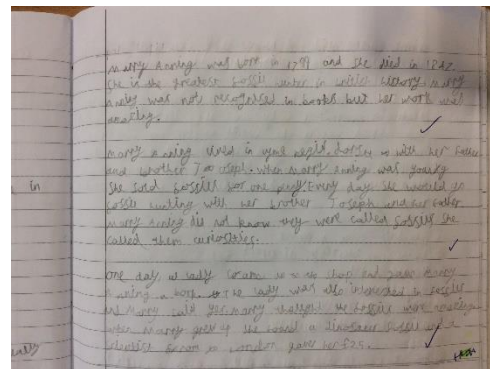 in
marry Anning was born in 1799 and she died in 1842
she is the greatest fossil hunter in british history. marry
Aning was not recognised in books but her work was
amazing.
marry Anning lived in lyme regis, Dorset with her father
and brother Joseph. when marry Anning was young
she sold fossils for one penny. Every day she would go
fossil hunting with her brother Joseph and her father.
marry Anning did not know they were called fossils she
called them curiosities.
one day, a lady in shop and gave marry
Aning a book. The lady was also interested in fossils
and marry the fossils were amazing
when marry grew up she found a Dinosaur fossil and a
from London gave her £25.
eally